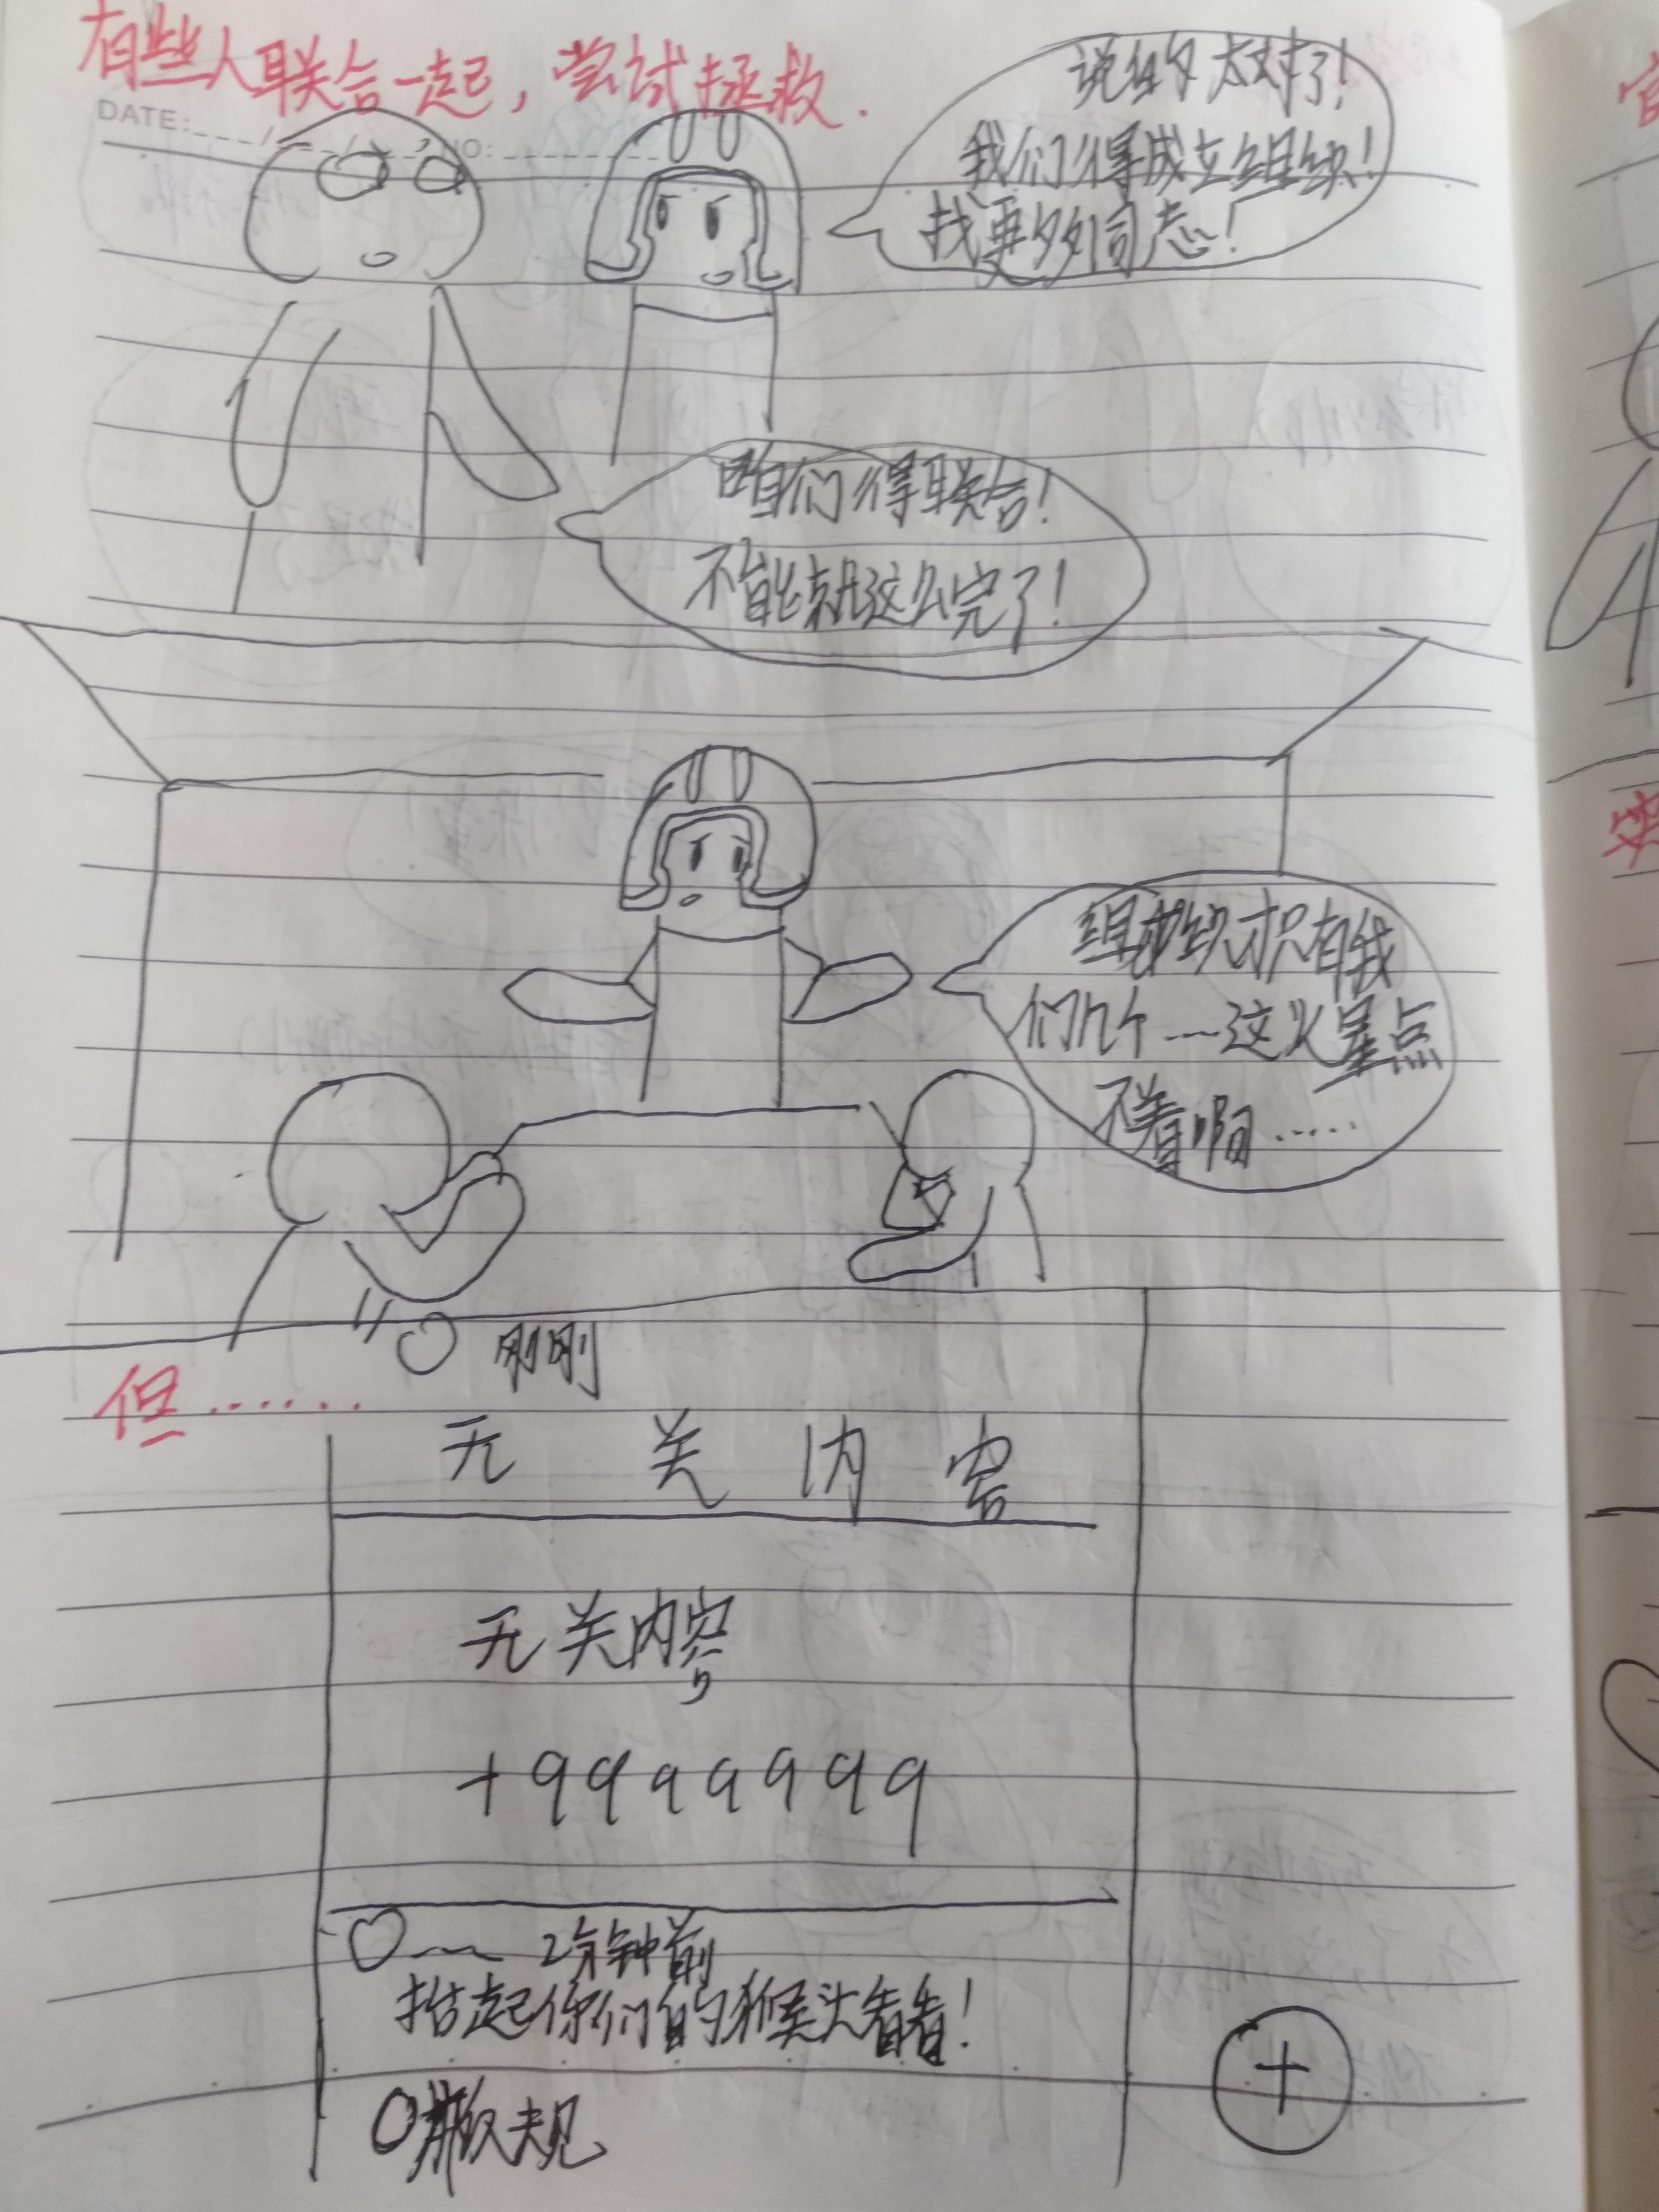 有些人联合一起，尝试拯救.
DATE:___/___/___ NO:
说的太对了！
我们得成立组织！
找更多同志！
咱们得联合！
不能就这么完了！
组织才只有我
们几个……这火星点
不着啊……
刚刚
但……
无关内容
无关内容
+9999999
2分钟前
抬起你们的猴头看看！
+